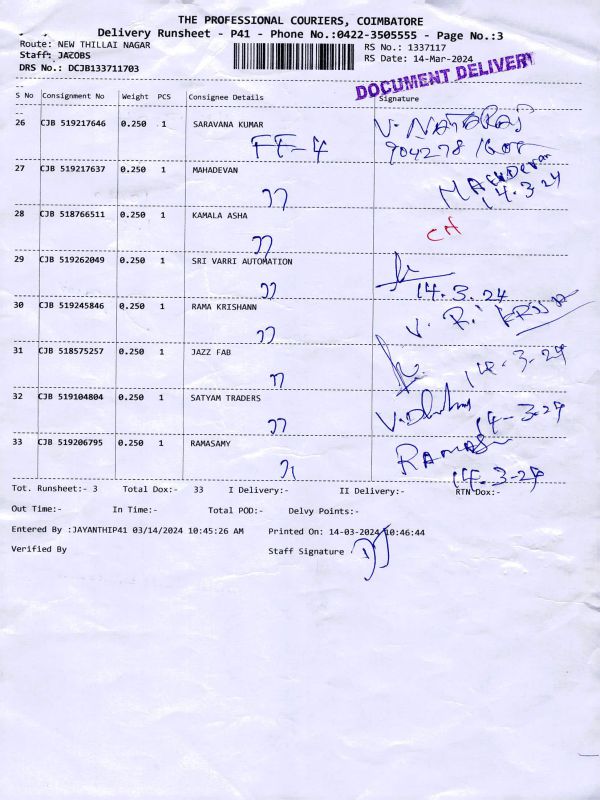 THE PROFESSIONAL COURIERS, COIMBATORE
Delivery Runsheet - P41 - Phone No.:0422-3505555 - Page No.:3
Route: NEW THILLAI NAGAR RS No.: 1337117
Staff: JACOBS RS Date: 14-Mar-2024
DRS No.: DCJB133711703
DOCUMENT DELIVERY
S No Consignment No Weight PCS Consignee Details Signature
26 CJB 519217646 0.250 1 SARAVANA KUMAR V. NATARAJ
FF-4
27 CJB 519217637 0.250 1 MAHADEVAN MAHADevan
14.3.24
28 CJB 518766511 0.250 1 KAMALA ASHA
CH
29 CJB 519262049 0.250 1 SRI VARRI AUTOMATION
14.3.24
30 CJB 519245846 0.250 1 RAMA KRISHANN
V. R.
31 CJB 518575257 0.250 1 JAZZ FAB
14-3-24
32 CJB 519104804 0.250 1 SATYAM TRADERS
14-3-24
33 CJB 519206795 0.250 1 RAMASAMY
14.3-24
Tot. Runsheet:- 3 Total Dox:- 33 I Delivery:- II Delivery:- RTN Dox:-
Out Time:- In Time:- Total POD:- Delvy Points:-
Entered By :JAYANTHIP41 03/14/2024 10:45:26 AM Printed On: 14-03-2024 10:46:44
Verified By Staff Signature